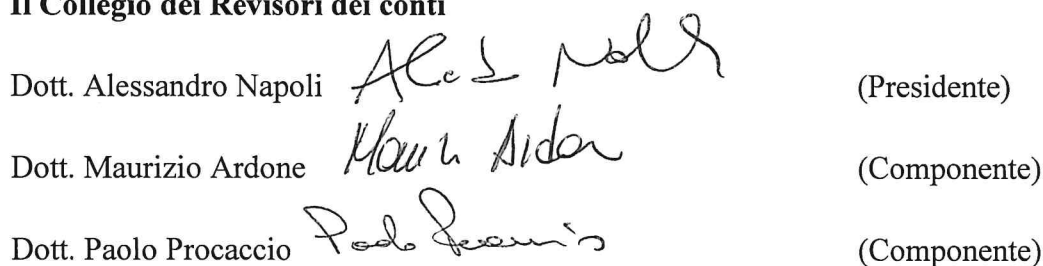 Il Collegio dei Revisori dei conti
Dott. Alessandro Napoli (Presidente)
Dott. Maurizio Ardone (Componente)
Dott. Paolo Procaccio Paolo (Componente)